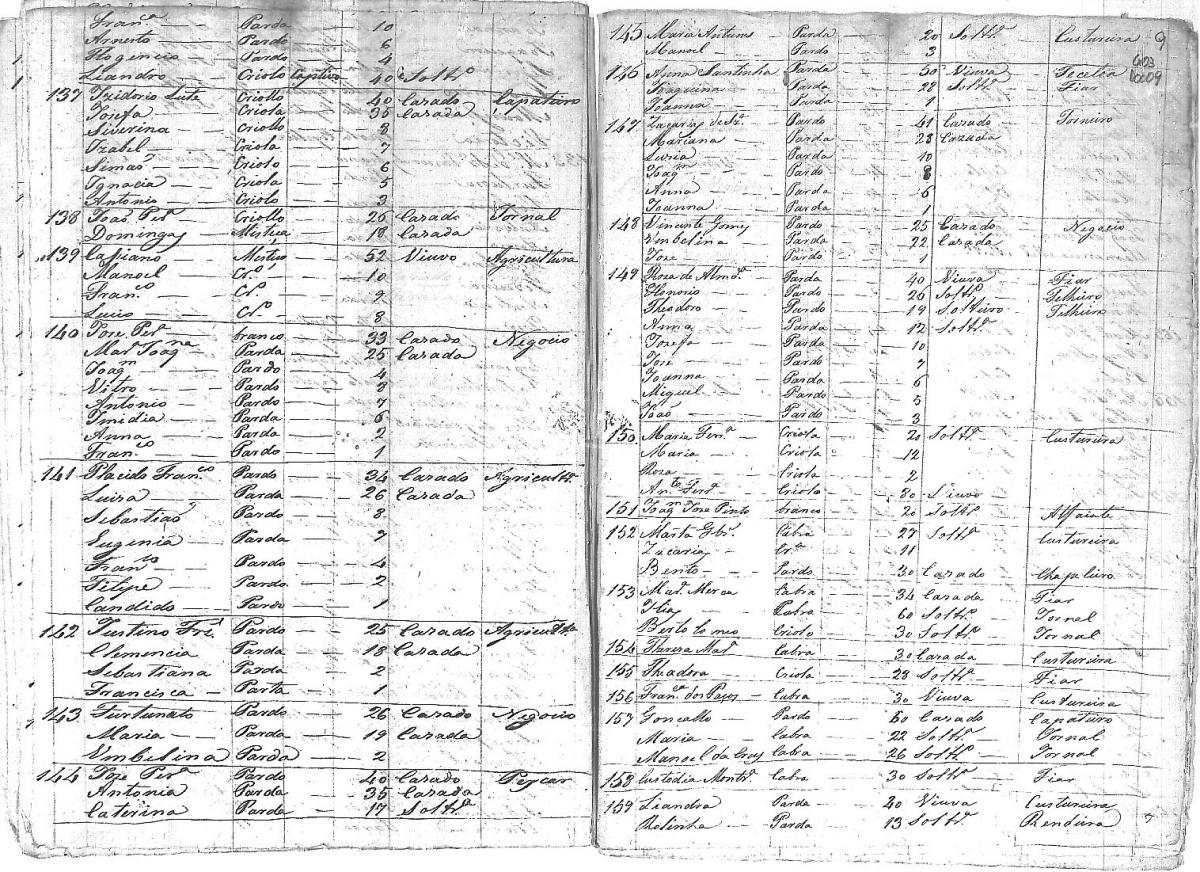 Fran.ca Parda 10
Arnerto Pardo 6
Flogencio Pardo 4
Leandro Criolo Captivo 40 Solt.o
137 Izidorio Leite Criollo 40 Cazado Capatiro
Josefa Criola 35 Cazada
Siverina Criollo 8
Izabel Criola 7
Simaõ Criolo 6
Ignacia Criola 5
Antonio Criolo 3
138 Joaõ Per.a Criollo 26 Cazado Jornal
Domingas Mistica 18 Cazada
139 CaPiano Mistico 52 Viuvo Agricultura
Manoel Cr.o 10
Fran.co Cr.o 9
Lucio Cr.o 8
140 Joze Per.a branco 33 Cazado Negocio
Mar.a Joaq.na Parda 25 Cazada
Joaq.m Pardo 4
Vitro Pardo 8
Antonio Pardo 7
Imidia Parda 6
Anna Parda 2
Fran.co Pardo 1
141 Placido Fran.co Pardo 34 Cazado Agricult.a
Luiza Parda 26 Cazada
Sebastiaõ Pardo 8
Eugenia Parda 7
Fran.co Pardo 4
Felype Pardo 2
Candido Pardo 1
142 Justino Frr.a Pardo 25 Cazado Agricult.a
Clemencia Parda 18 Cazada
Sebastiana Parda 2
Francisca Parta 1
143 Furtunato Pardo 26 Cazado Negocio
Maria Parda 19 Cazada
Vmbelina Parda 2
144 Joze Per.a Pardo 40 Cazado Pescar
Antonia Parda 35 Cazada
Caterina Parda 17 Solt.a
145 Maria Antunes Parda 20 Solt.a Custureira 9
Manoel Pardo 3
146 Anna Santinha Parda 50 Viuva Tocetra
Joaquina Parda 28 Solt.a Fiar
Joanna Parda 1
147 Zacarias de Sz.a Pardo 41 Cazado Torneiro
Mariana Parda 23 Cazada
Luzia Parda 10
Joaq.m Pardo 8
Anna Parda 6
Joanna Parda 1
148 Vincente Gomes Pardo 25 Cazado Negocio
Vmbelina Parda 22 Cazada
Joze Pardo 1
149 Roza de Almd.a Parda 40 Viuva Fiar
Honorio Pardo 26 Solt.o Telhiro
Theodoro Pardo 19 Soltiro Telhiro
Anna Parda 12 Solt.a
Jozefa Parda 10
Joze Pardo 7
Joanna Parda 6
Miguel Pardo 5
Joaõ Pardo 3
150 Maria Ferr.a Criola 20 Solt.a Custureira
Maria Criola 12
Roza Criola 2
An.to Ferr.a Criolo 80 Viuvo
151 Joaq.m Joze Pinto branco 20 Solt.o Alfaiate
152 Marta Gbr.a Cabra 27 Solt.a Custureira
Zacaria Cr.o 11
Bento Pardo 30 Cazado Chapeliro
153 Mar.a Merca Cabra 34 Cazada Fiar
Cabra 60 Solt.a Jornal
Bertolomeo Criolo 30 Solt.o Jornal
154 Thereza Mar.a Cabra 30 Cazada Custureira
155 Thiadora Criola 28 Solt.a Fiar
156 Fran.ca dos Paços Cabra 30 Viuva Custureira
157 Goncallo Pardo 50 Cazado Capatiro
Maria Cabra 22 Solt.a Jornal
Manoel da Cruz Cabra 26 Solt.o Jornal
158 Custodia Montr.a Cabra 30 Solt.a Fiar
159 Liandra Parda 40 Viuva Custureira
Rolinha Parda 13 Solt.a Rendeira